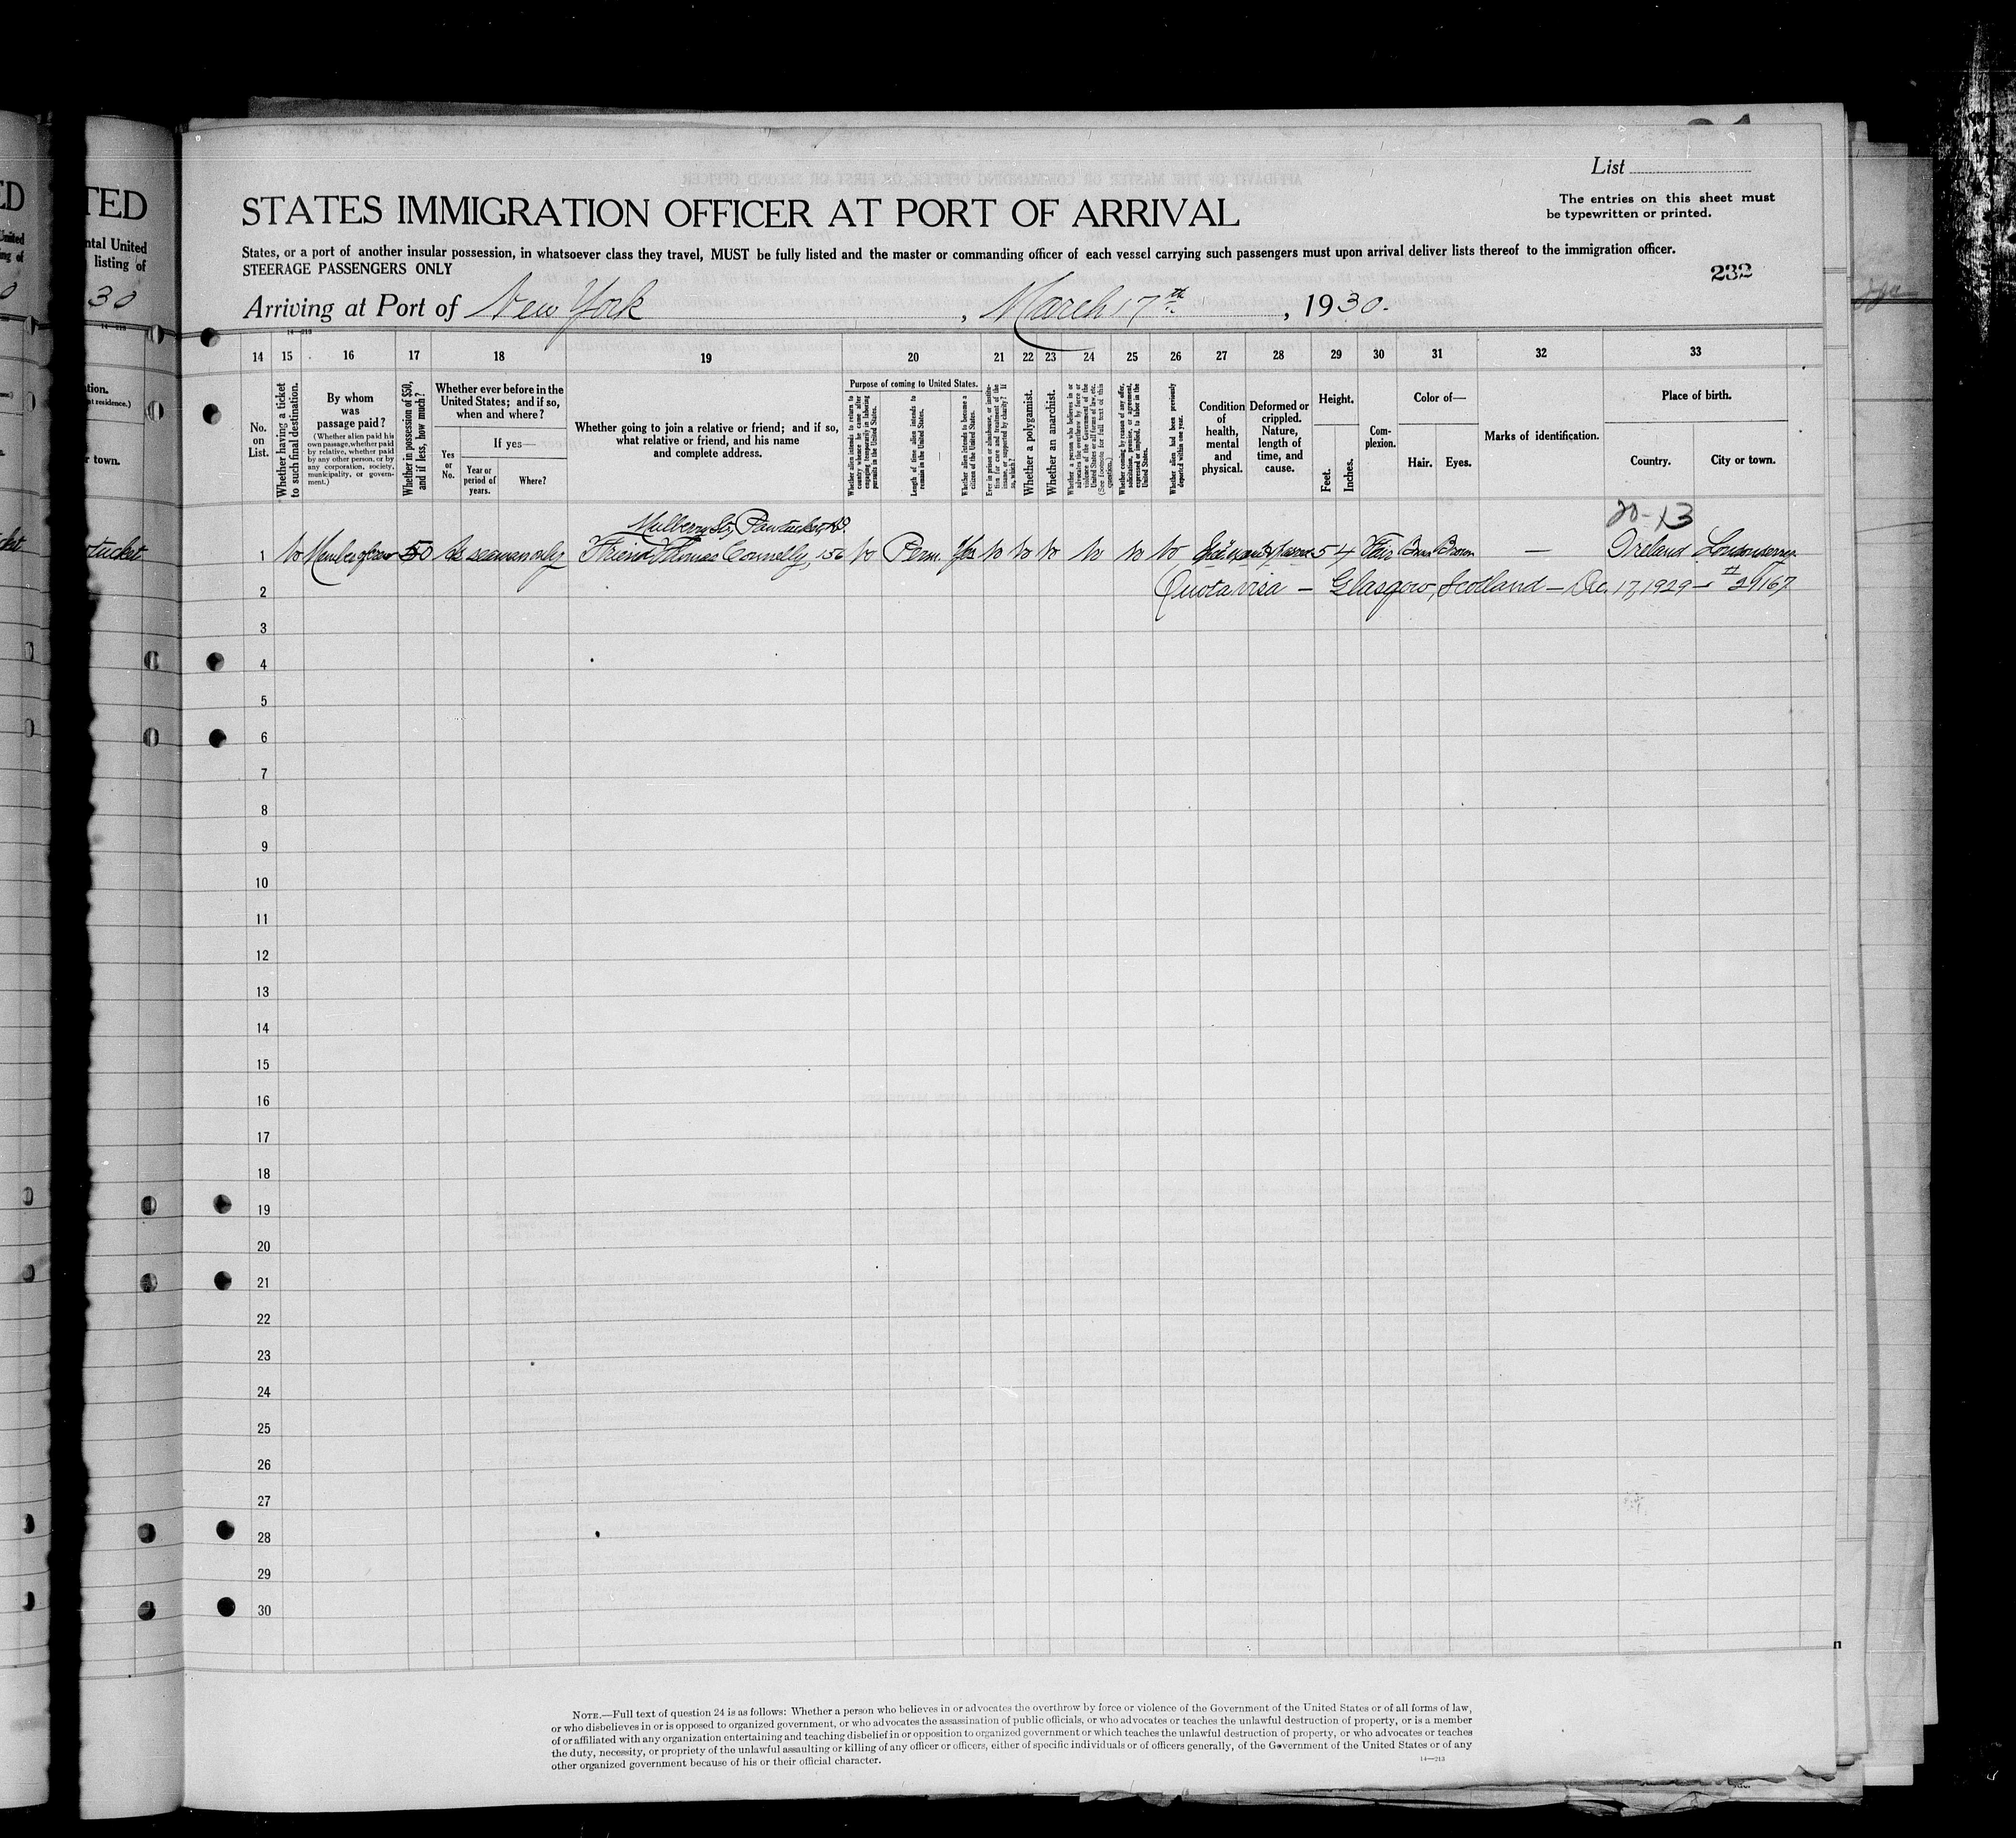 List
The entries on this sheet must
be typewritten or printed.
STATES IMMIGRATION OFFICER AT PORT OF ARRIVAL
States, or a port of another insular possession, in whatsoever class they travel, MUST be fully listed and the master or commanding officer of each vessel carrying such passengers must upon arrival deliver lists thereof to the immigration officer.
STEERAGE PASSENGERS ONLY
232
Arriving at Port of New York, March 17th, 1930.
14 15 16 17 18 19 20 21 22 23 24 25 26 27 28 29 30 31 32 33
No. on List.
Whether having a ticket to such final destination.
By whom was passage paid?
(Whether alien paid his own passage, whether paid by relative, whether paid by any other person, or by any corporation, society, municipality, or government.)
Whether in possession of $50, and if less, how much?
Whether ever before in the United States; and if so, when and where?
Yes or No.
If yes—
Year or period of years.
Where?
Whether going to join a relative or friend; and if so, what relative or friend, and his name and complete address.
Purpose of coming to United States.
Whether alien intends to return to country whence he came after engaging temporarily in laboring pursuits in the United States.
Length of time alien intends to remain in the United States.
Whether alien intends to become a citizen of the United States.
Ever in prison or almshouse, or institution for care and treatment of the insane, or supported by charity? If so, which?
Whether a polygamist.
Whether an anarchist.
Whether a person who believes in or advocates the overthrow by force or violence of the Government of the United States or all forms of law, etc. (See footnote for full text of this question.)
Whether coming by reason of any offer, solicitation, promise, or agreement, expressed or implied, to labor in the United States.
Whether alien had been previously deported within one year.
Condition of health, mental and physical.
Deformed or crippled. Nature, length of time, and cause.
Height.
Feet.
Inches.
Complexion.
Color of—
Hair.
Eyes.
Marks of identification.
Place of birth.
Country.
City or town.
20-13
Mulberry St., Pawtucket, R.I.
1 No Member of crew 50 As seaman only Friend Thomas Connelly, 156 No Perm. Yes No No No No No No 5 4 Fair Brn Brown — Ireland Londonderry
2 Quota visa — Glasgow, Scotland — Dec. 17, 1929 —
3
4
5
6
7
8
9
10
11
12
13
14
15
16
17
18
19
20
21
22
23
24
25
26
27
28
29
30
NOTE.—Full text of question 24 is as follows: Whether a person who believes in or advocates the overthrow by force or violence of the Government of the United States or of all forms of law,
or who disbelieves in or is opposed to organized government, or who advocates the assassination of public officials, or who advocates or teaches the unlawful destruction of property, or is a member
of or affiliated with any organization entertaining and teaching disbelief in or opposition to organized government or which teaches the unlawful destruction of property, or who advocates or teaches
the duty, necessity, or propriety of the unlawful assaulting or killing of any officer or officers, either of specific individuals or of officers generally, of the Government of the United States or of any
other organized government because of his or their official character.
14—213